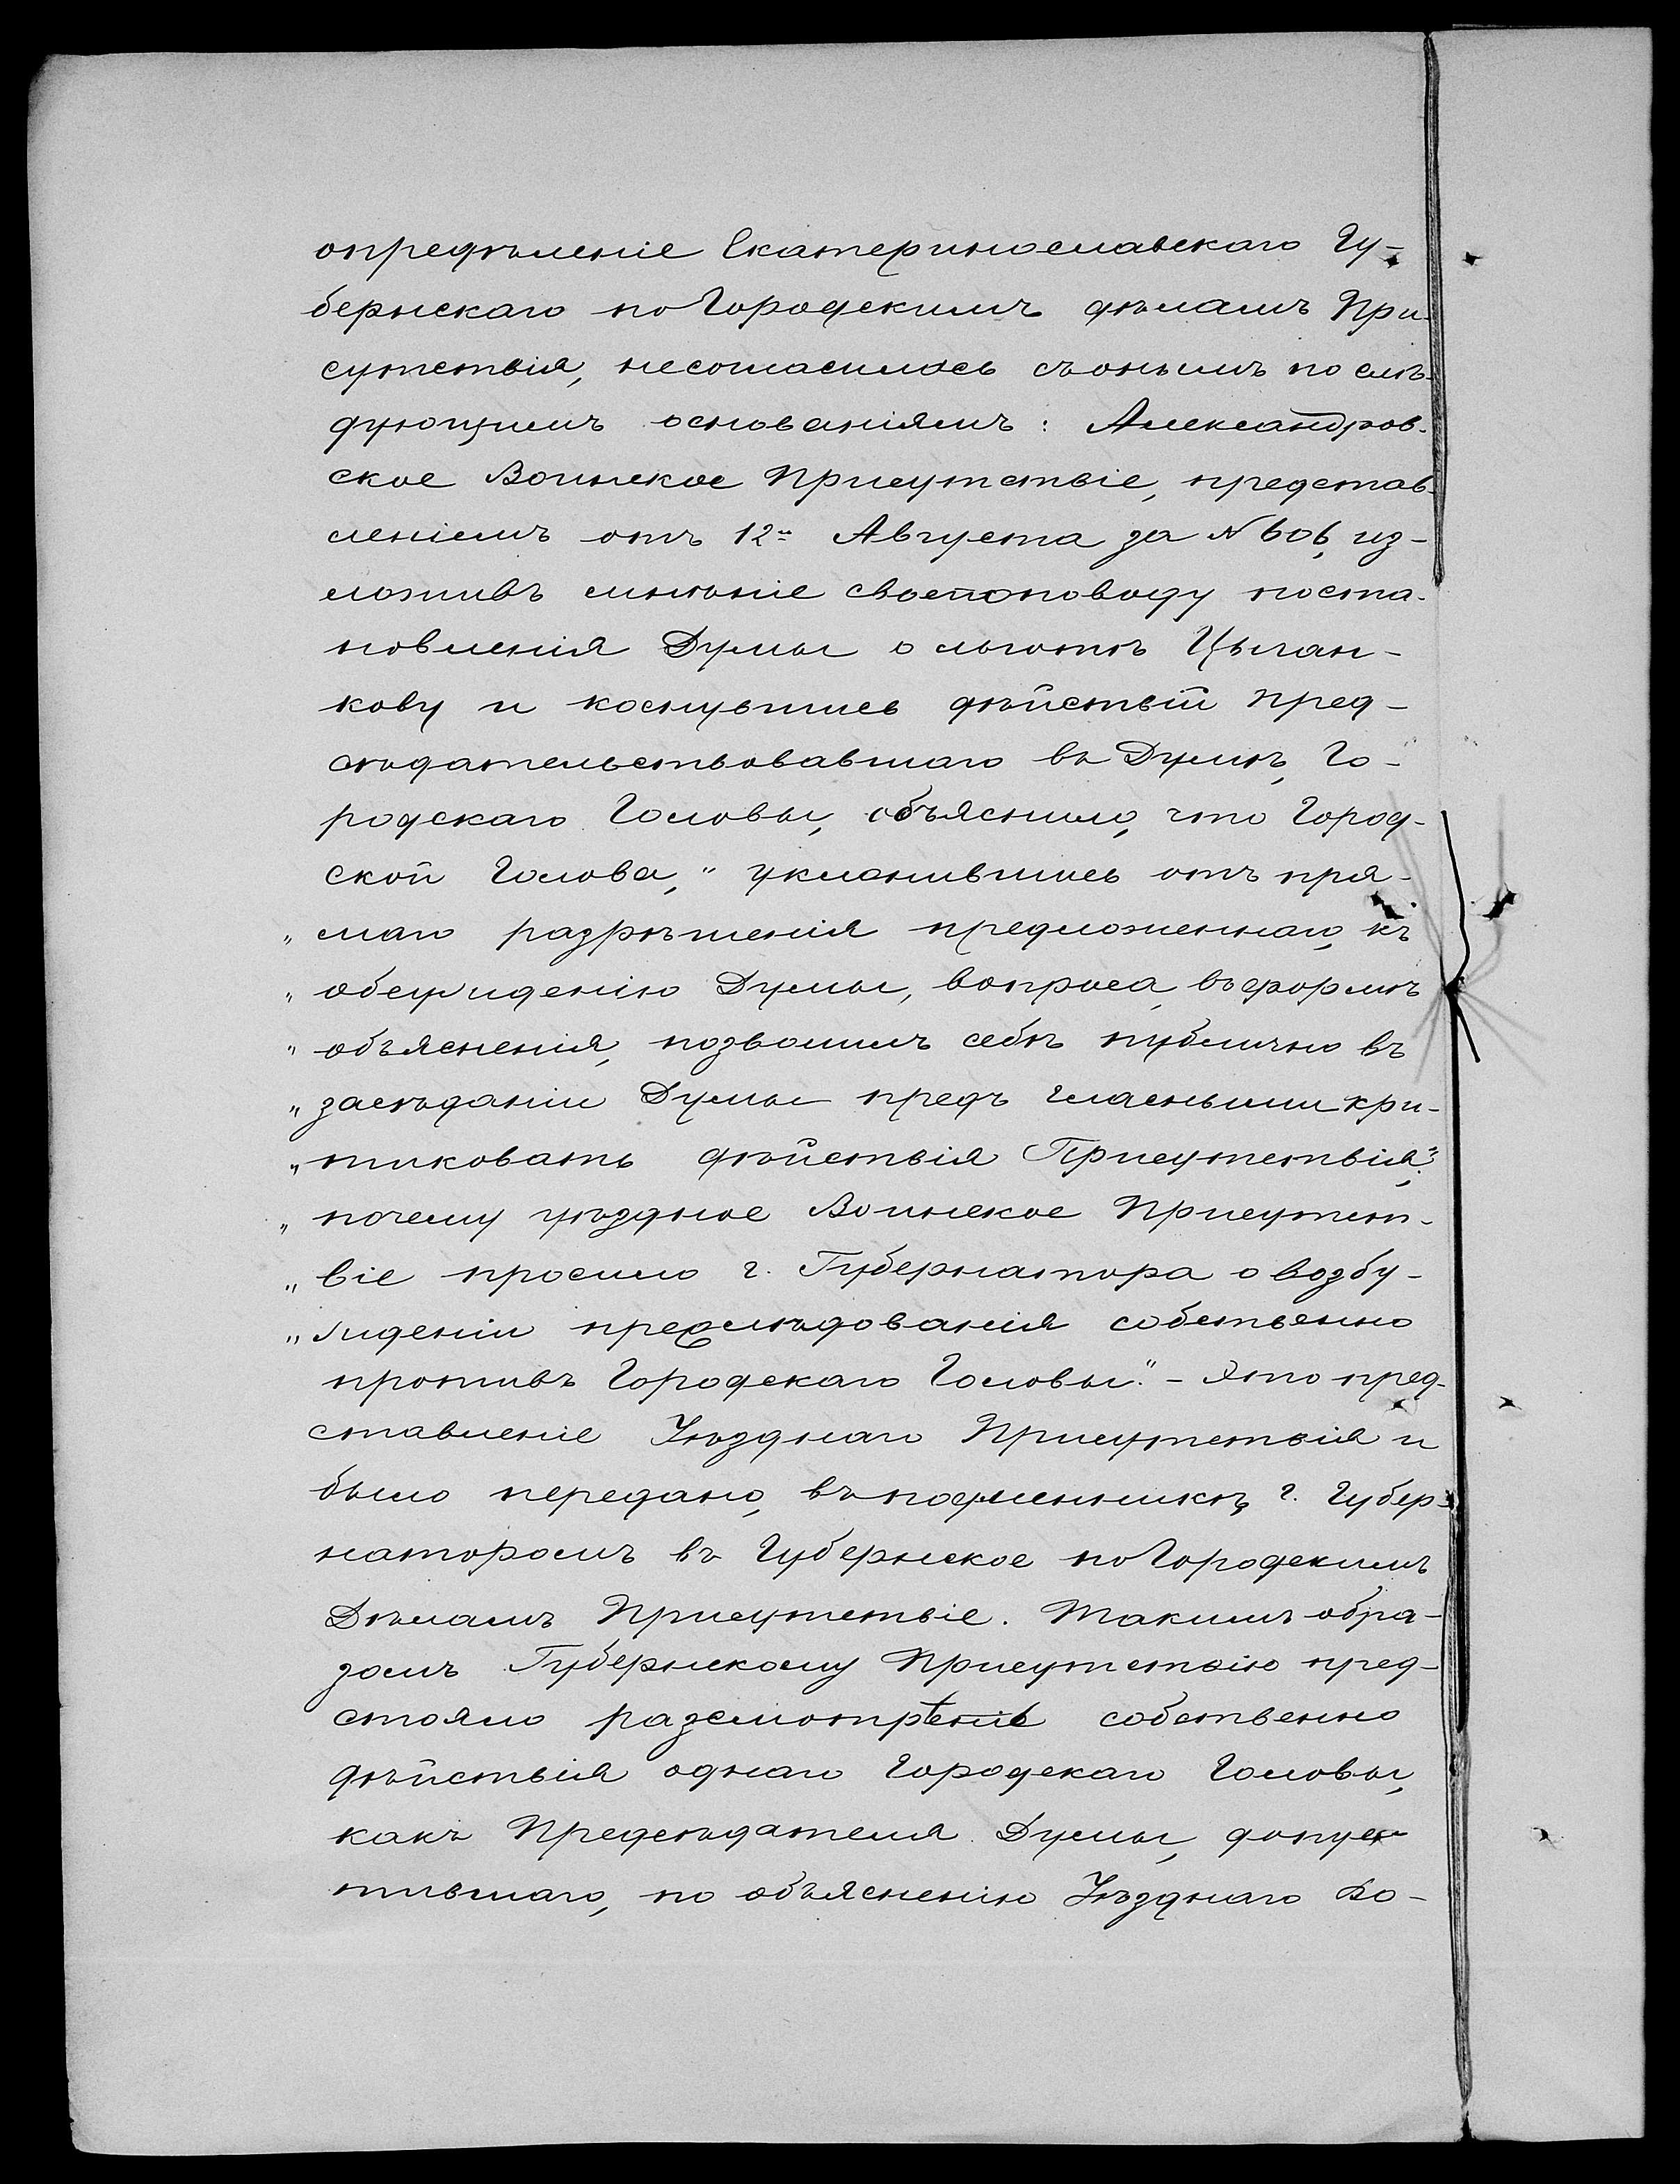 опредѣленіе Екатеринославскаго Гу-
бернскаго по Городскимъ дѣламъ При-
сутствія, несогласилось съ онымъ по слѣ-
дующимъ основаніямъ: Александров-
ское Воинское Присутствіе, представ-
леніемъ отъ 12го Августа за № 606, из-
ложивъ мнѣніе свое по поводу поста-
новленія Думы о льготѣ Цыган-
кову и коснувшись дѣйствій пред-
сѣдательствовавшаго въ Думѣ, Го-
родскаго Головы, объяснило, что Город-
ской Голова, „уклонившись отъ пря-
„маго разрѣшенія предложеннаго, къ
„обсужденію Думы, вопроса, въ формѣ
„объясненія, позволилъ себѣ публично въ
„засѣданіи Думы предъ гласными кри-
„тиковать дѣйствія Присутствія,"
„почему уѣздное Воинское Присутст-
„віе просило г. Губернатора о возбу-
„жденіи преслѣдованія собственно
противъ Городскаго Головы." – Это пред-
ставленіе Уѣзднаго Присутствія и
было передано, въ подлинникѣ, г. Губер-
наторомъ въ Губернское по Городскимъ
Дѣламъ Присутствіе. Такимъ обра-
зомъ Губернскому Присутствію пред-
стояло разсмотрѣніе собственно
дѣйствія однаго Городскаго Головы,
какъ Предсѣдателя Думы, допус-
тившаго, по объясненію Уѣзднаго Во-